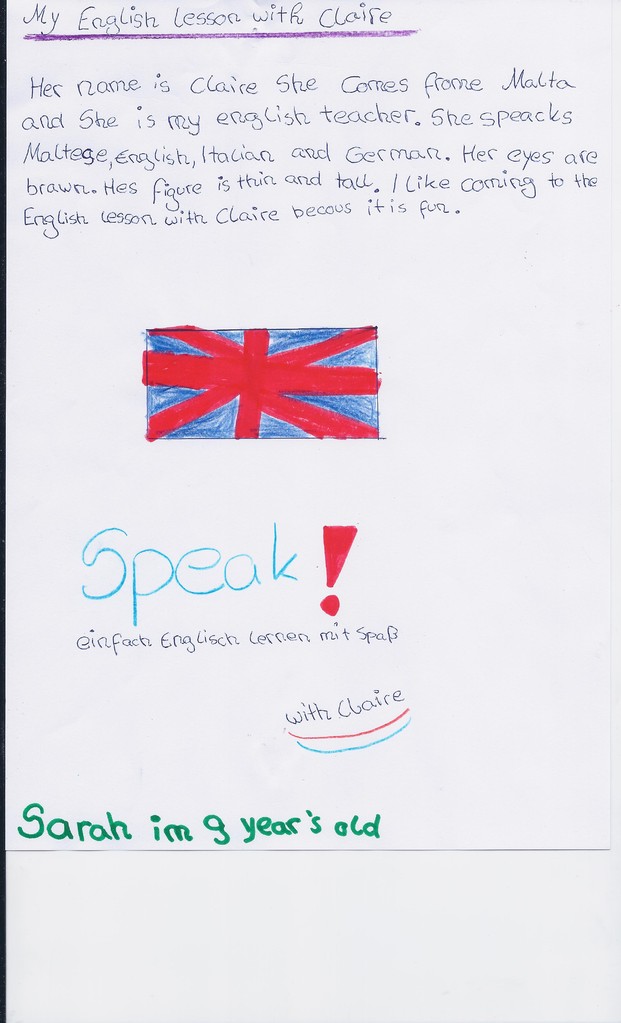 My English lesson with Claire
Her name is Claire She comes frome Malta
and She is my english teacher. She speacks
Maltege, English, Italian and German. Her eyes are
brawn. Hes figure is thin and tall. I like coming to the
English lesson with Claire becous it is fun.
Speak!
einfach Englisch lernen mit Spaß
with Claire
Sarah im 9 year's old